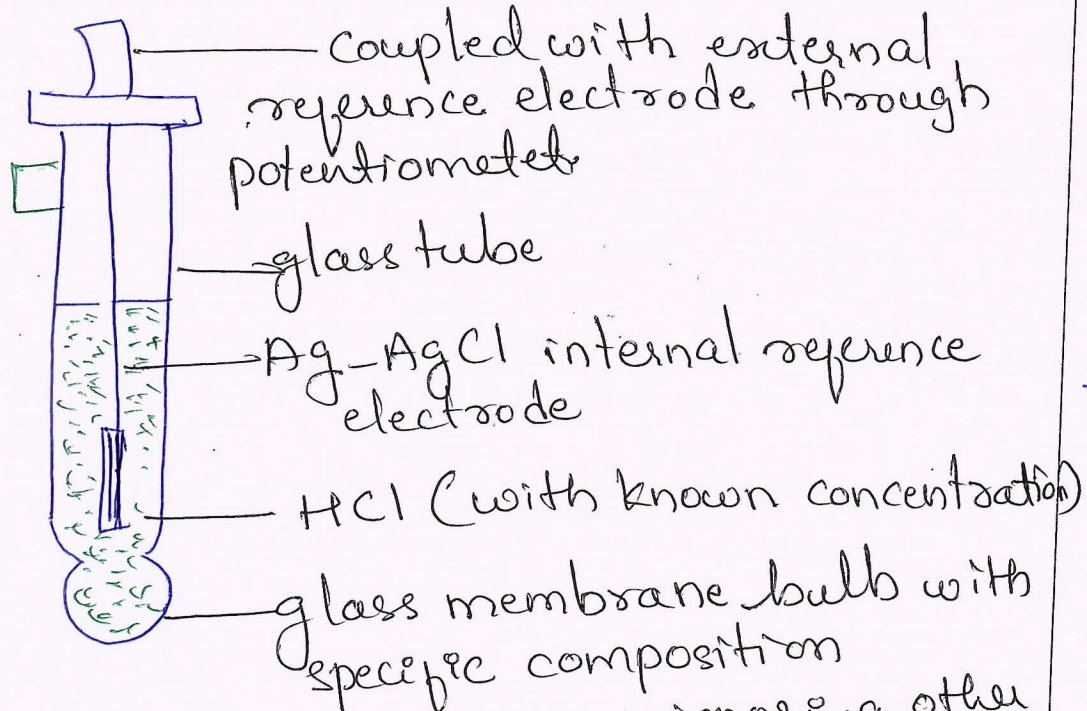 coupled with external
reference electrode through
potentiometer
glass tube
Ag-AgCl internal reference
electrode
HCl (with known concentration)
glass membrane bulb with
specific composition
other